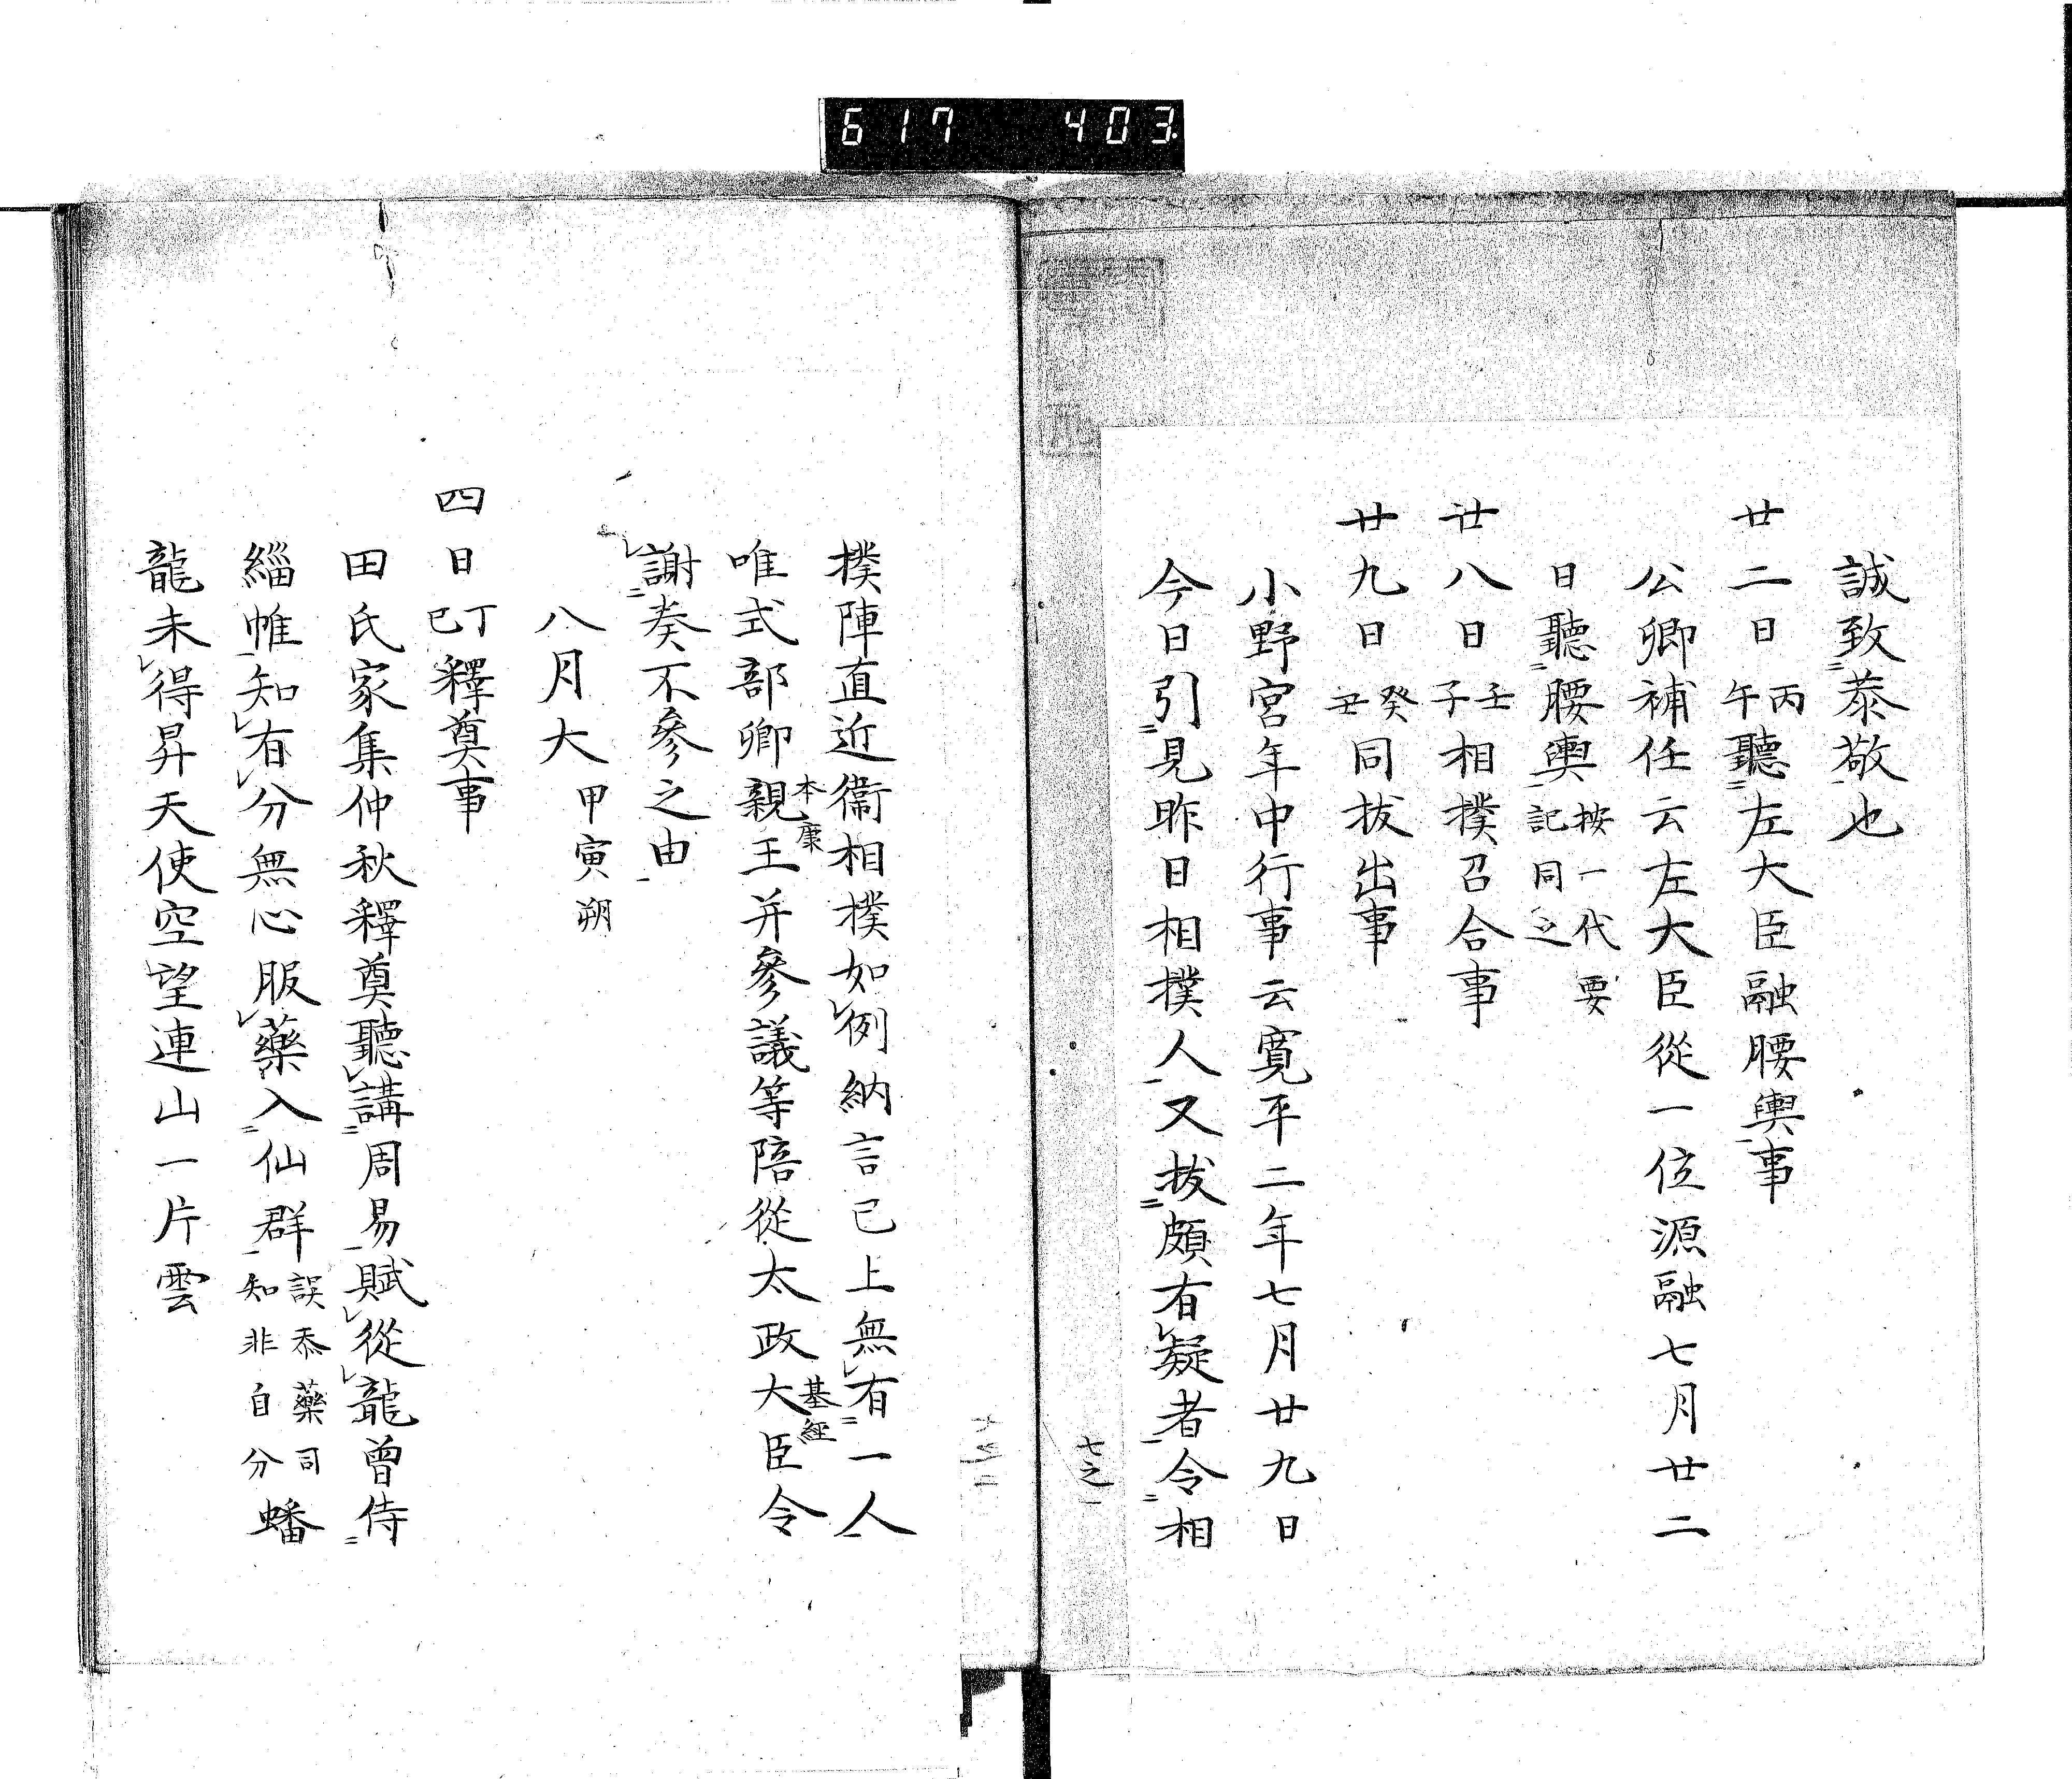 617 403
誠致恭敬也
廿二日丙午聽左大臣融腰輿事
公卿補任云左大臣從一位源融七月廿二
日聽腰輿按一代要記同之
廿八日壬子相撲召合事
廿九日癸丑同拔出事
小野宮年中行事云寛平二年七月廿九日
今日引見昨日相撲人又拔頗有疑者令相
七之一
撲陣直近衞相撲如例納言已上無有一人
唯式部卿親王本康并參議等陪從太政大臣基經令
謝奏不參之由
八月大甲寅朔
四日丁巳釋奠事
田氏家集仲秋釋奠聽講周易賦從龍曾侍
緇帷知有分無心服藥入仙群誤忝藥司知非自分蟠
龍未得昇天使空望連山一片雲